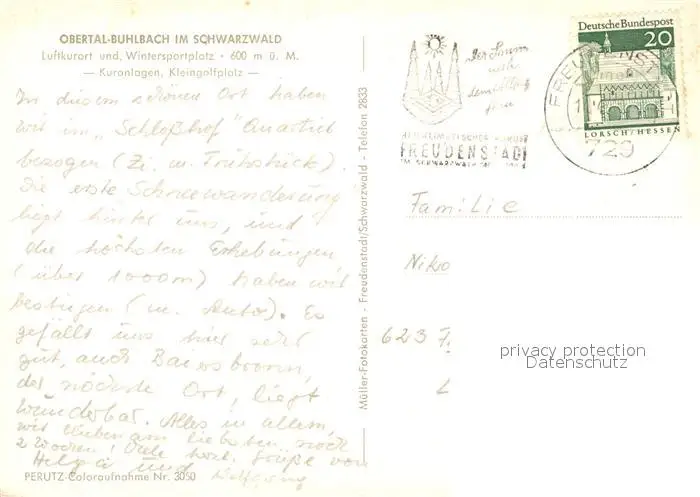 OBERTAL-BUHLBACH IM SCHWARZWALD
Luftkurort und Wintersportplatz · 600 m ü. M.
— Kuranlagen, Kleingolfplatz —
In diesem schönen Ort haben
wir im „Schloßhof" Quartier
bezogen (Zi. m. Frühstück).
Die erste Schneewanderung
liegt hinter uns, und
die höchsten Erhebungen
(über 1000m) haben wir
bestiegen (m. Auto). Es
gefällt uns hier sehr
gut, auch Baiersbronn,
der nächste Ort, liegt
wunderbar. Alles in allem,
wir blieben am liebsten noch
2 Wochen! Viele herzl. Grüße von
Helga und Wolfgang
PERUTZ-Coloraufnahme Nr. 3050
Müller-Fotokarten - Freudenstadt/Schwarzwald - Telefon 2833
Der Sonne
FREUDENSTADT
IM SCHWARZWALD
FREUDENST
729
Deutsche Bundespost
20
LORSCH/HESSEN
Familie
Niko
623 F.
privacy protection
Datenschutz